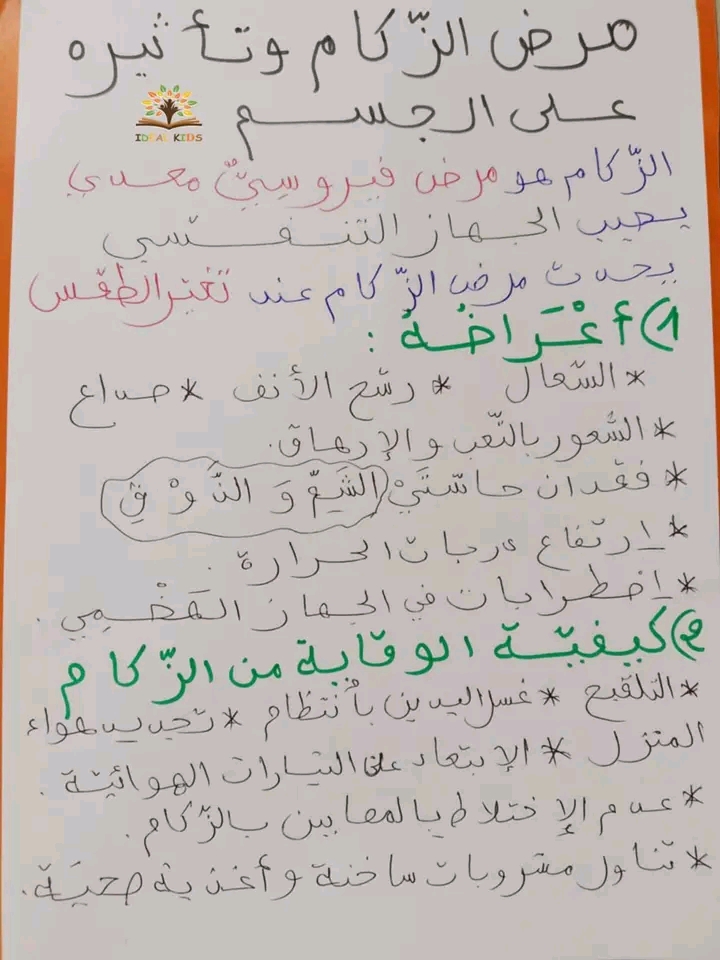 مرض الزّكام وتأثيره
على الجسم
IDEAL KIDS
الزّكام هو مرض فيروسيّ معدي
يصيب الجهاز التنفسي
يحدث مرض الزّكام عند تغير الطقس
1) أعْرَاضُهُ :
* السّعال * رشح الأنف * صداع
* الشّعور بالتّعب والإرهاق.
* فقدان حاسّتَيْ الشَّمِّ وَ الذَّوْقِ
* إرتفاع درجات الحرارة .
* إضطرابات في الجهاز الهَضْمِي .
2) كيفيّة الوقاية من الزّكام
* التلقيح * غسل اليدين بأنتظام * تجديد هواء
المنزل * الإبتعاد على التيارات الهوائيّة .
* عدم الإختلاط بالمصابين بالزّكام .
* تناول مشروبات ساخنة وأغذية صحيّة .